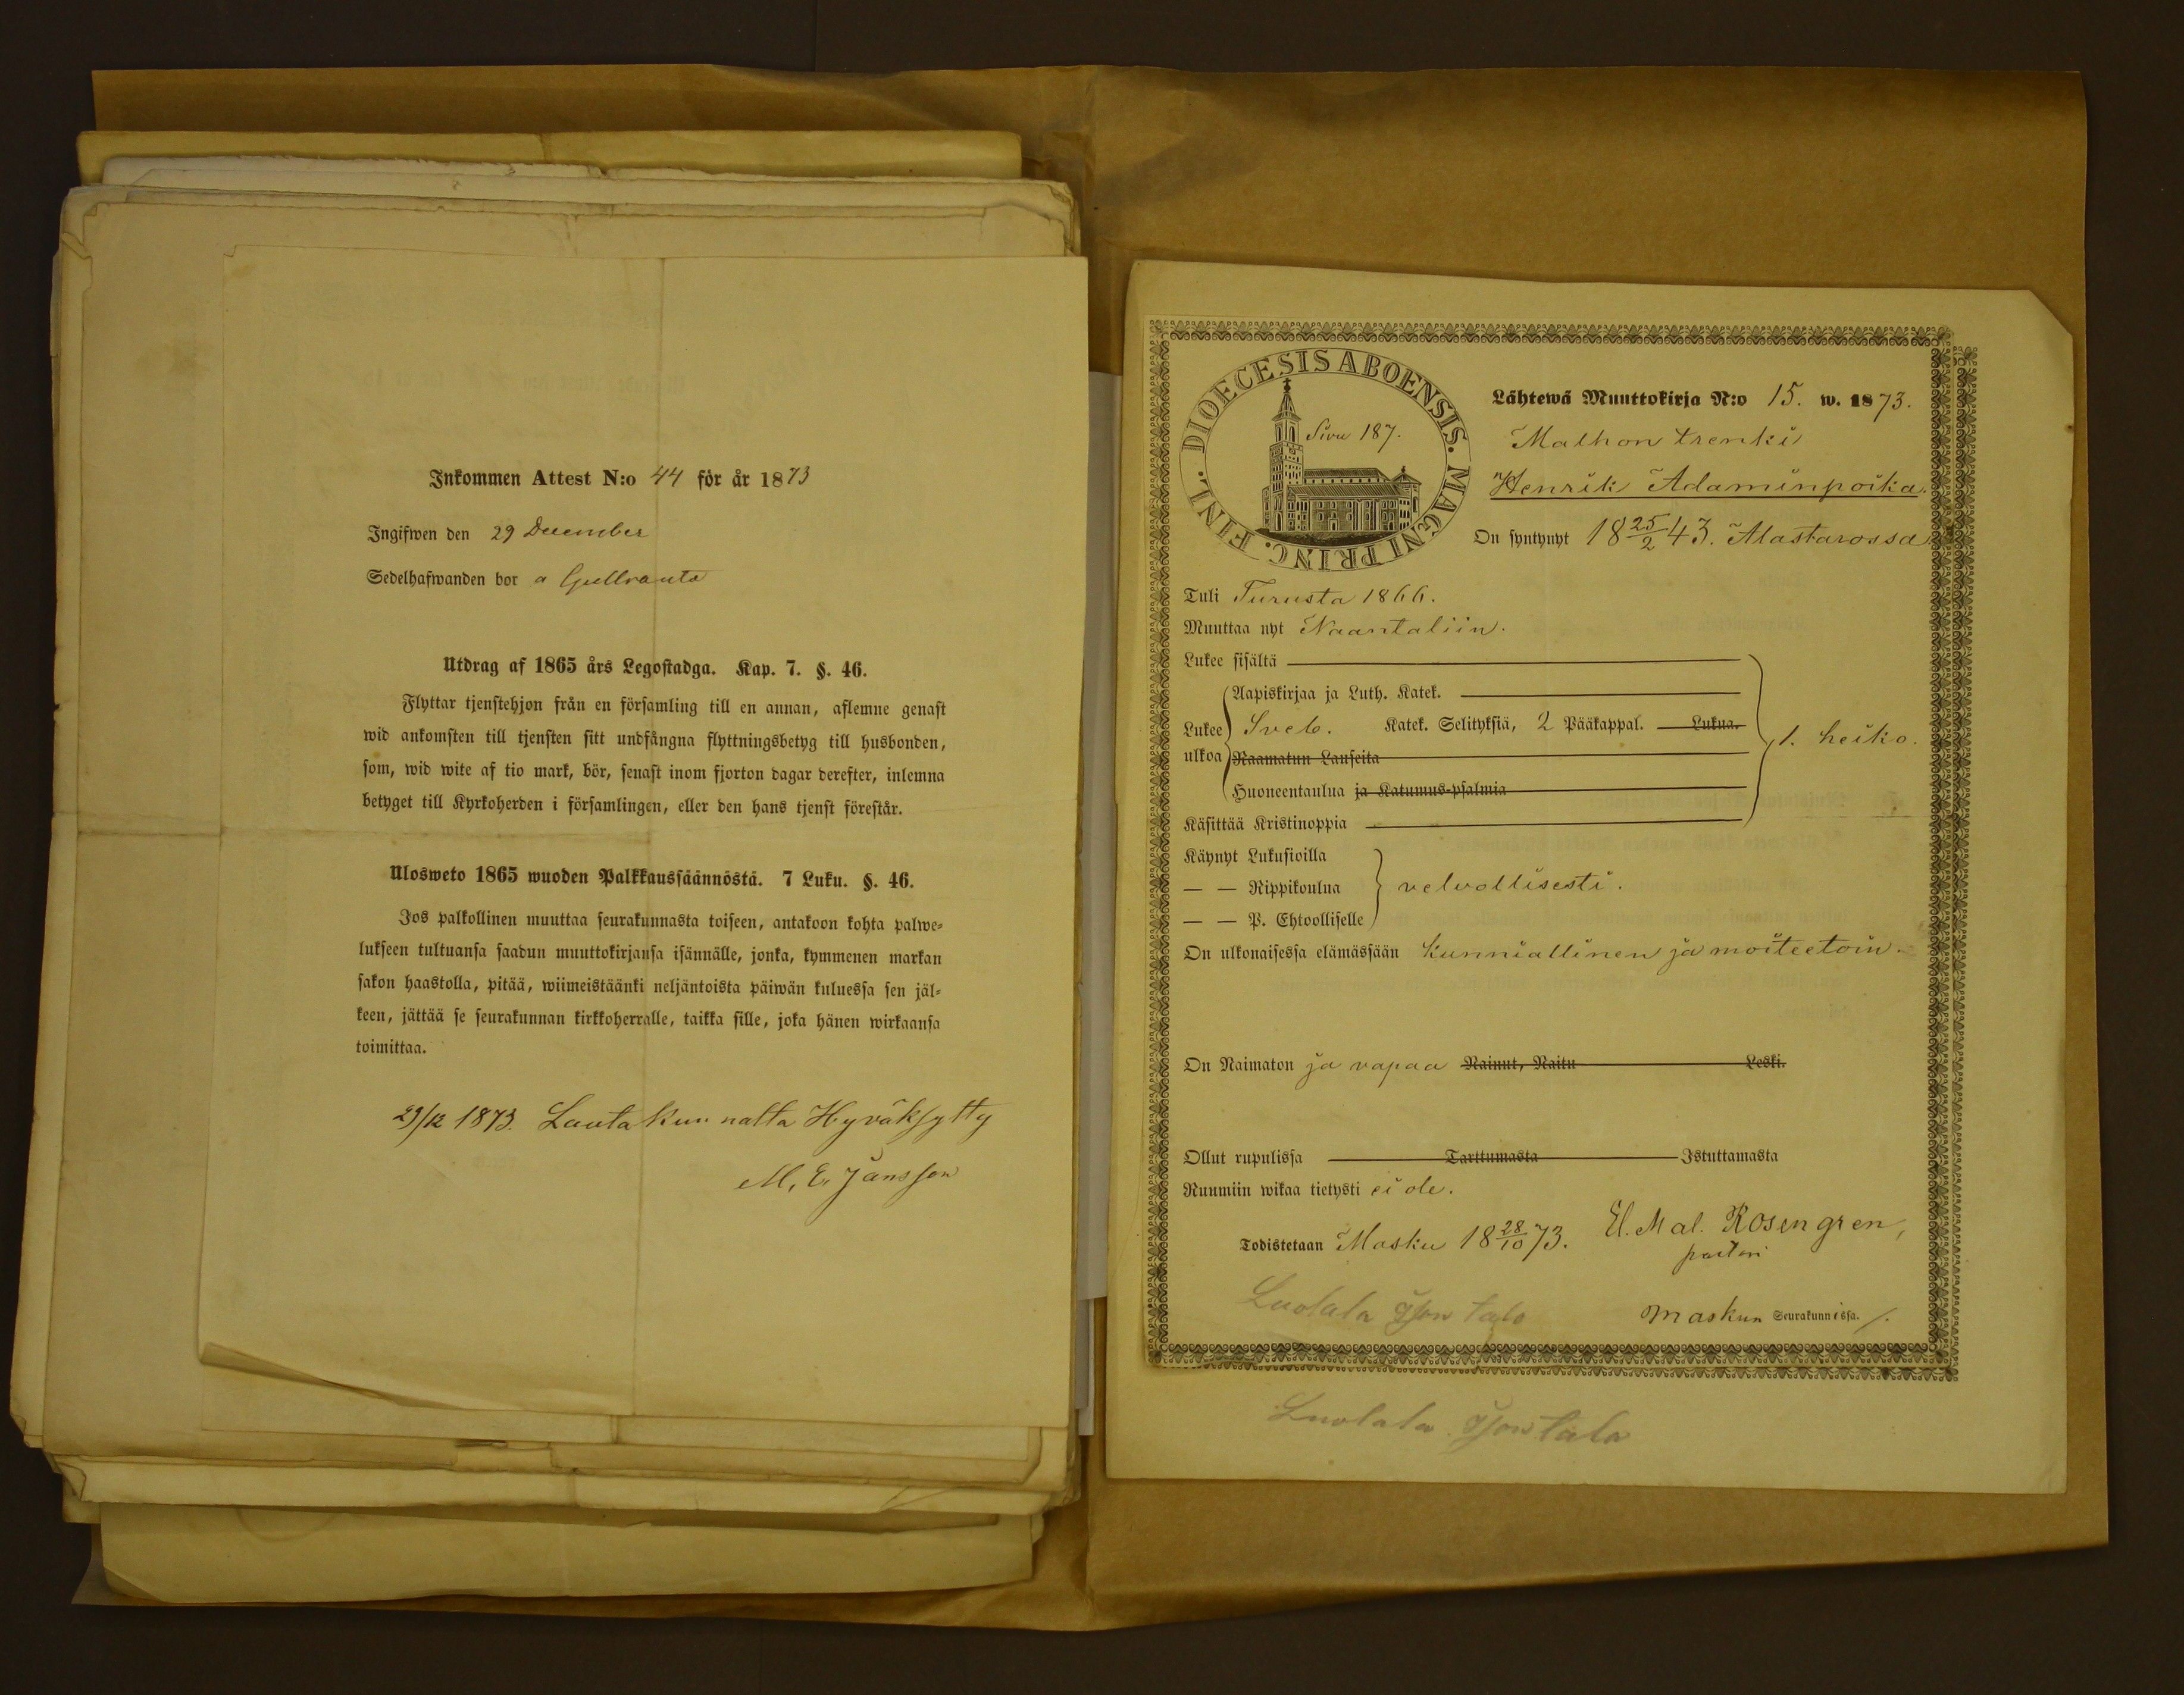 Inkommen Attest N:o 44 för år 1873
Ingifwen den 29 December
Sedelhafwanden bor a Gullranta
Utdrag af 1865 års Legostadga. Kap. 7. §. 46.
Flyttar tjenstehjon från en församling till en annan, aflemne genast
wid ankomsten till tjensten sitt undfångna flyttningsbetyg till husbonden,
som, wid wite af tio mark, bör, senast inom fjorton dagar derefter, inlemna
betyget till Kyrkoherden i församlingen, eller den hans tjenst förestår.
Ulosweto 1865 wuoden Palkkaussäännöstä. 7 Luku. §. 46.
Jos palkollinen muuttaa seurakunnasta toiseen, antakoon kohta palwe-
lukseen tultuansa saadun muuttokirjansa isännälle, jonka, kymmenen markan
sakon haastolla, pitää, wiimeistäänki neljäntoista päiwän kuluessa sen jäl-
keen, jättää se seurakunnan kirkkoherralle, taikka sille, joka hänen wirkaansa
toimittaa.
29/12 1873. Lautakunnalta Hyväksytty
M. E. Jansson
DIOECESIS ABOENSIS. MAGNI PRINC. FINL.
Sivu 187.
Lähtewä Muuttokirja N:o 15. w. 1873.
Malhon trenki
Henrik Adaminpoika.
On syntynyt 18 25/2 43. Alastarossa
Tuli Turusta 1866.
Muuttaa nyt Naantaliin.
Lukee sisältä
Aapiskirjaa ja Luth. Katek.
Lukee ulkoa Sveb. Katek. Selityksiä, 2 Pääkappal. Lukua. 1. heiko.
Raamatun Lauseita
Huoneentaulua ja Katumus-psalmia
Käsittää Kristinoppia
Käynyt Lukusioilla
— — Rippikoulua velvollisesti.
— — P. Ehtoolliselle
On ulkonaisessa elämässään kunniallinen ja moiteetoin.
On Naimaton ja vapaa Nainut, Naitu Leski.
Ollut rupulissa Tarttumasta Istuttamasta
Ruumiin wikaa tietysti ei ole.
Todistetaan Masku 18 28/10 73. El. Mal. Rosengren,
pastori
Luolala Ison talo
Maskun Seurakunnissa.
Luolala Isontalo